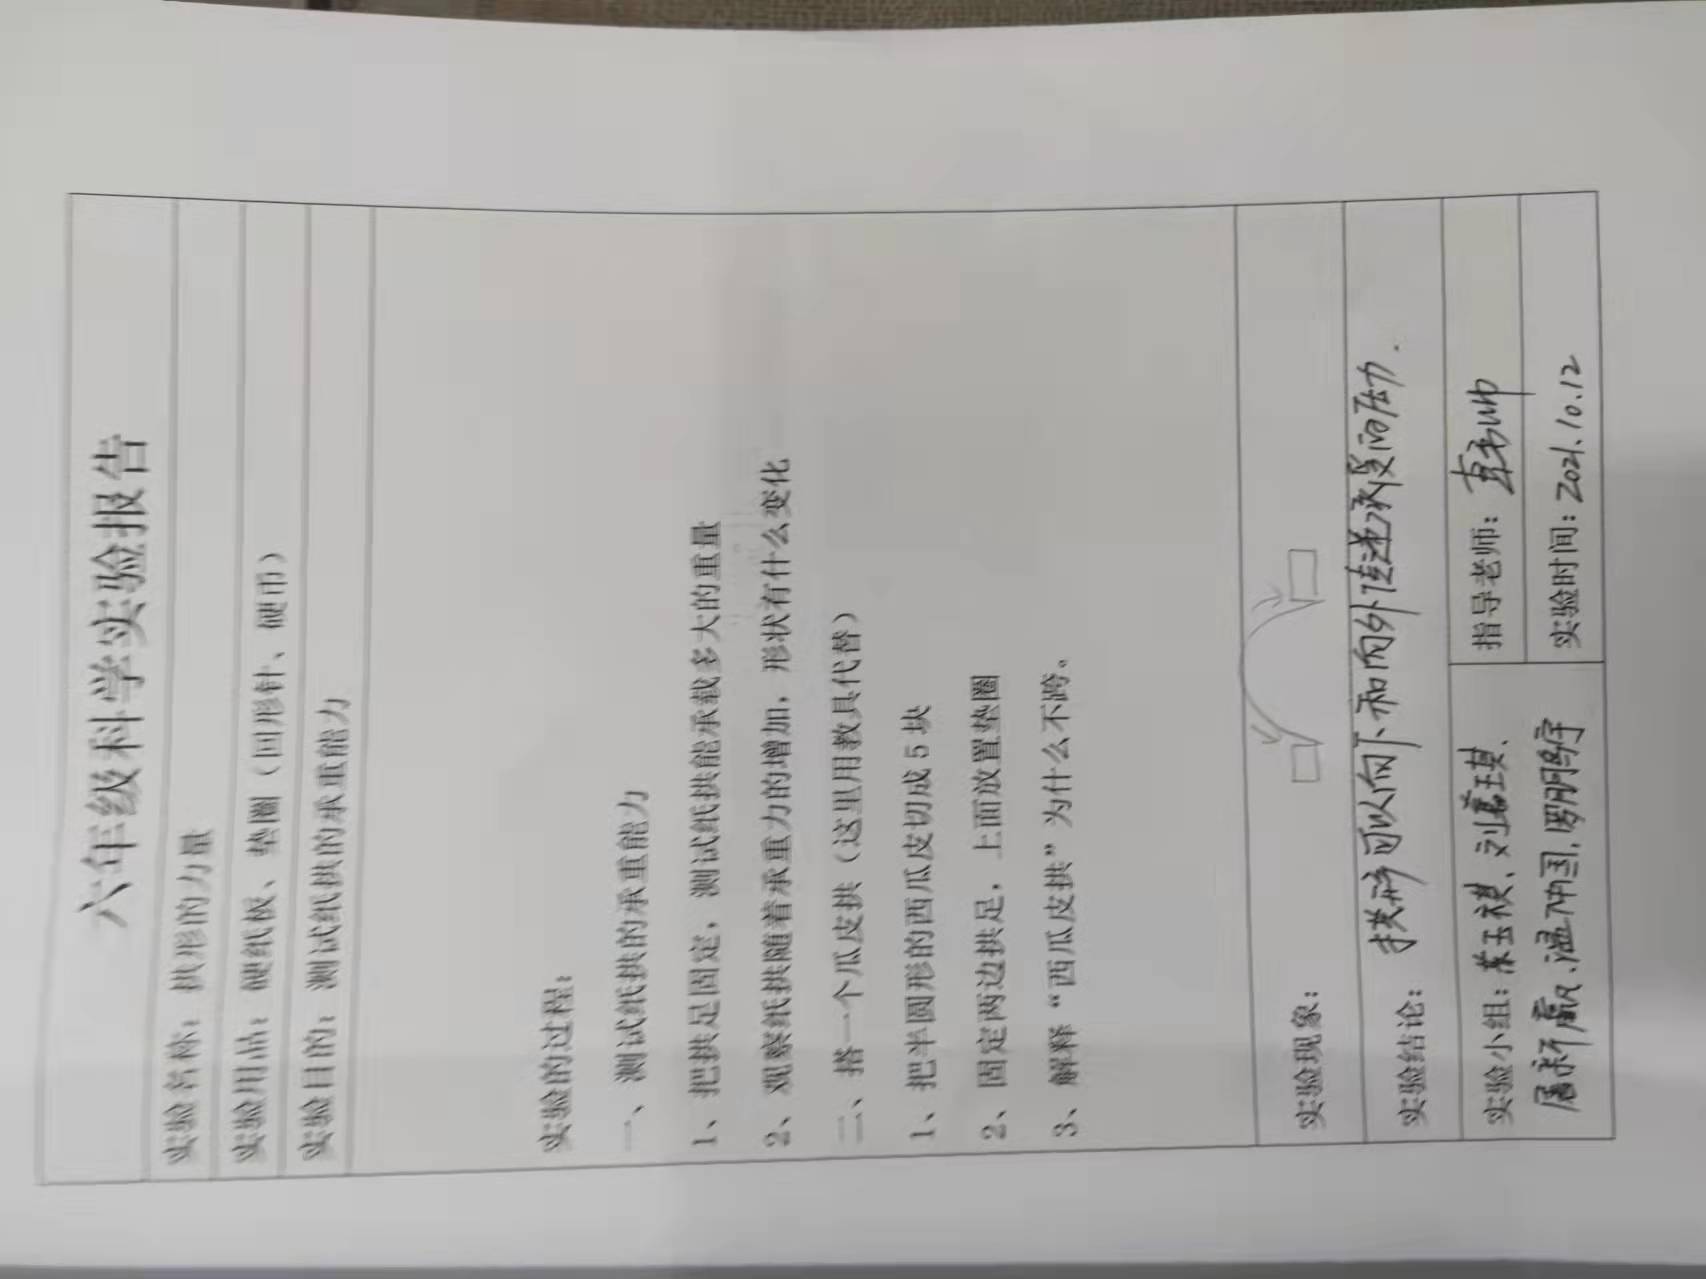 六年级科学实验报告
实验名称：拱形的力量
实验用品：硬纸板、垫圈（回形针、硬币）
实验目的：测试纸拱的承重能力
实验的过程：
一、测试纸拱的承重能力
1、把拱足固定，测试纸拱能承载多大的重量
2、观察纸拱随着承重力的增加，形状有什么变化
二、搭一个瓜皮拱（这里用教具代替）
1、把半圆形的西瓜皮切成5块
2、固定两边拱足，上面放置垫圈
3、解释“西瓜皮拱”为什么不跨。
实验现象：
实验结论：拱形可以向下和向外传递承受的压力.
实验小组：
指导老师：
实验时间：2021.10.12